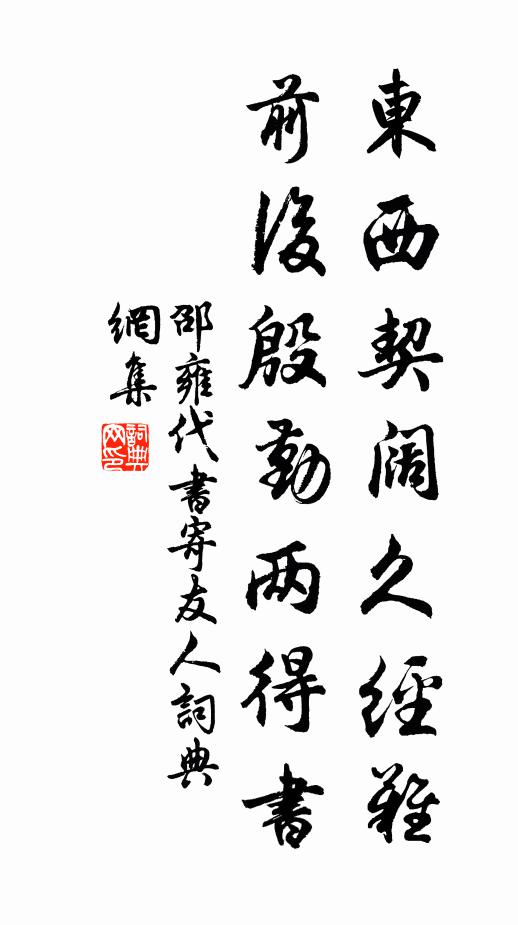 東西契闊久經難
前後殷勤两得書
邵雍代書寄友人詞典
網集
詞典
网印